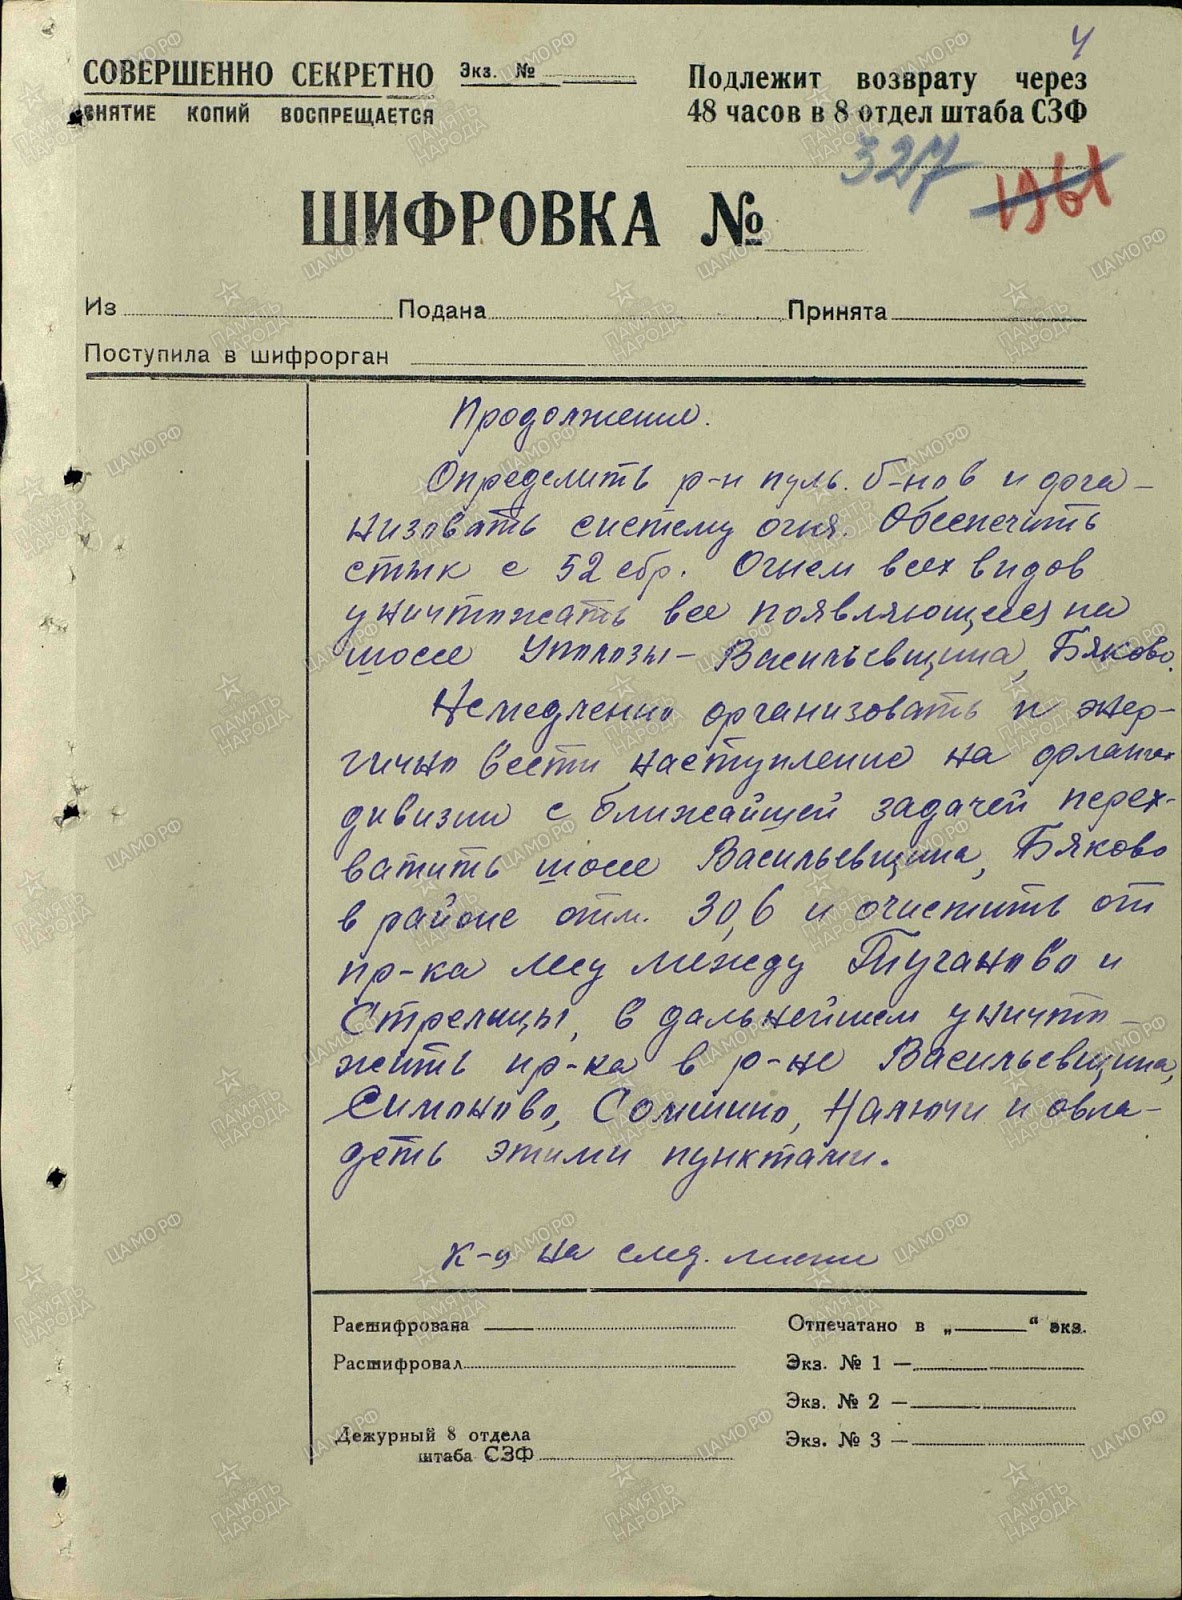 4
СОВЕРШЕННО СЕКРЕТНО Экз. №
СНЯТИЕ КОПИЙ ВОСПРЕЩАЕТСЯ
Подлежит возврату через
48 часов в 8 отдел штаба СЗФ
327 1961
ШИФРОВКА №
Из Подана Принята
Поступила в шифрорган
Продолжение.
Определить р-н пуль. б-нов и орга-
низовать систему огня. Обеспечить
стык с 52 сбр. Огнем всех видов
уничтожать все появляющееся на
шоссе Уполозы – Васильевщина, Бяково.
Немедленно организовать и энер-
гично вести наступление на флангах
дивизии с ближайшей задачей перех-
ватить шоссе Васильевщина, Бяково
в районе отм. 30,6 и очистить от
пр-ка лес между Тугановo и
Стрелицы, в дальнейшем уничто-
жить пр-ка в р-не Васильевщина,
Симоново, Сомшино, Налючи и овла-
деть этими пунктами.
К-ц на след. листе
Расшифрована
Расшифровал
Дежурный 8 отдела
штаба СЗФ
Отпечатано в „ “ экз.
Экз. № 1 —
Экз. № 2 —
Экз. № 3 —
ПАМЯТЬ НАРОДА
ЦАМО.РФ